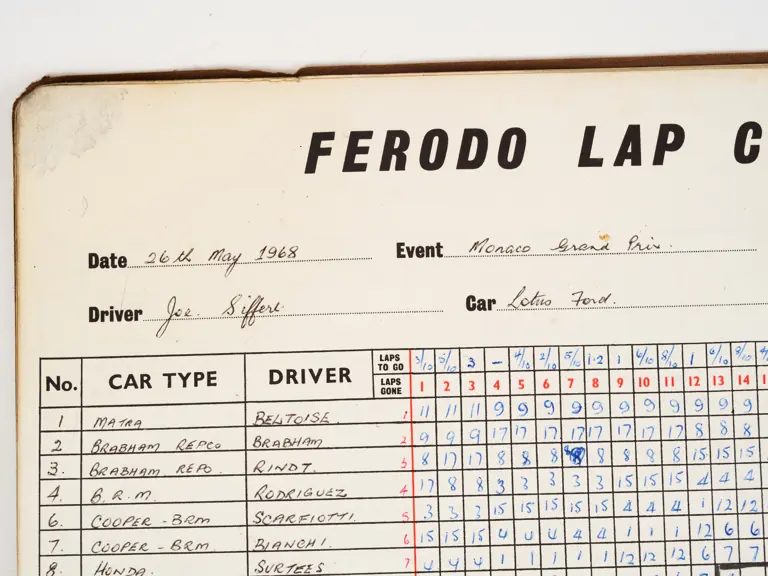 FERODO LAP C
Date 26th May 1968 Event Monaco Grand Prix.
Driver Joe. Siffert Car Lotus Ford.
No. CAR TYPE DRIVER LAPS TO GO 3/10 5/10 3 – 4/10 2/10 5/10 1·2 1 6/10 8/10 1 6/10
LAPS GONE 1 2 3 4 5 6 7 8 9 10 11 12 13 14 1
1 MATRA BELTOISE. 1 11 11 11 9 9 9 9 9 9 9 9 9 9 9
2 BRABHAM REPCO BRABHAM 2 9 9 9 17 17 17 17 17 17 17 17 8 8 8
3. BRABHAM REPO RINDT. 3 8 17 17 8 8 8 8 8 8 8 15 15 15
4. B.R.M. RODRIGUEZ 4 17 8 8 3 3 3 3 3 15 15 15 4 4 4
6. COOPER - BRM SCARFIOTTI. 5 3 3 3 15 15 15 15 15 4 4 4 1 12 12
7. COOPER - BRM. BIANCHI. 6 15 15 15 4 4 4 4 4 1 1 1 12 6 6
8. HONDA. SURTEES 7 4 4 4 1 1 1 1 1 12 12 12 6 7 7